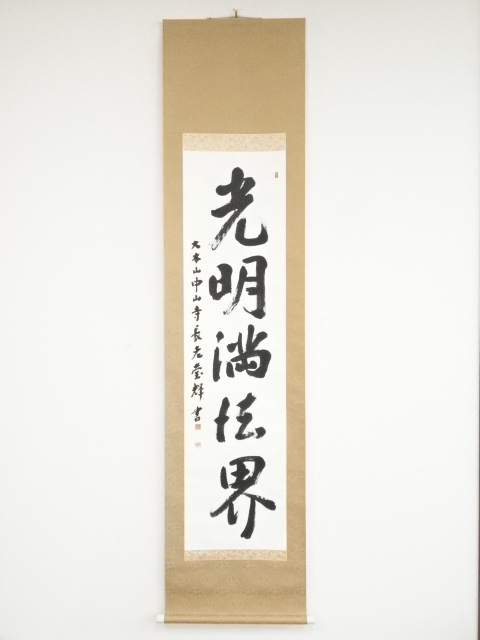 光明満法界
大本山中山寺長老瑩輝書